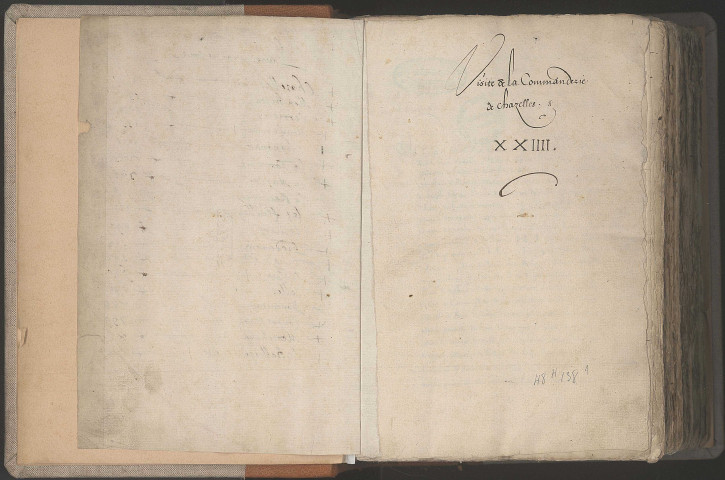 Visite de la Commanderie
de chazelles.
XXIIII.
48 H 138 1